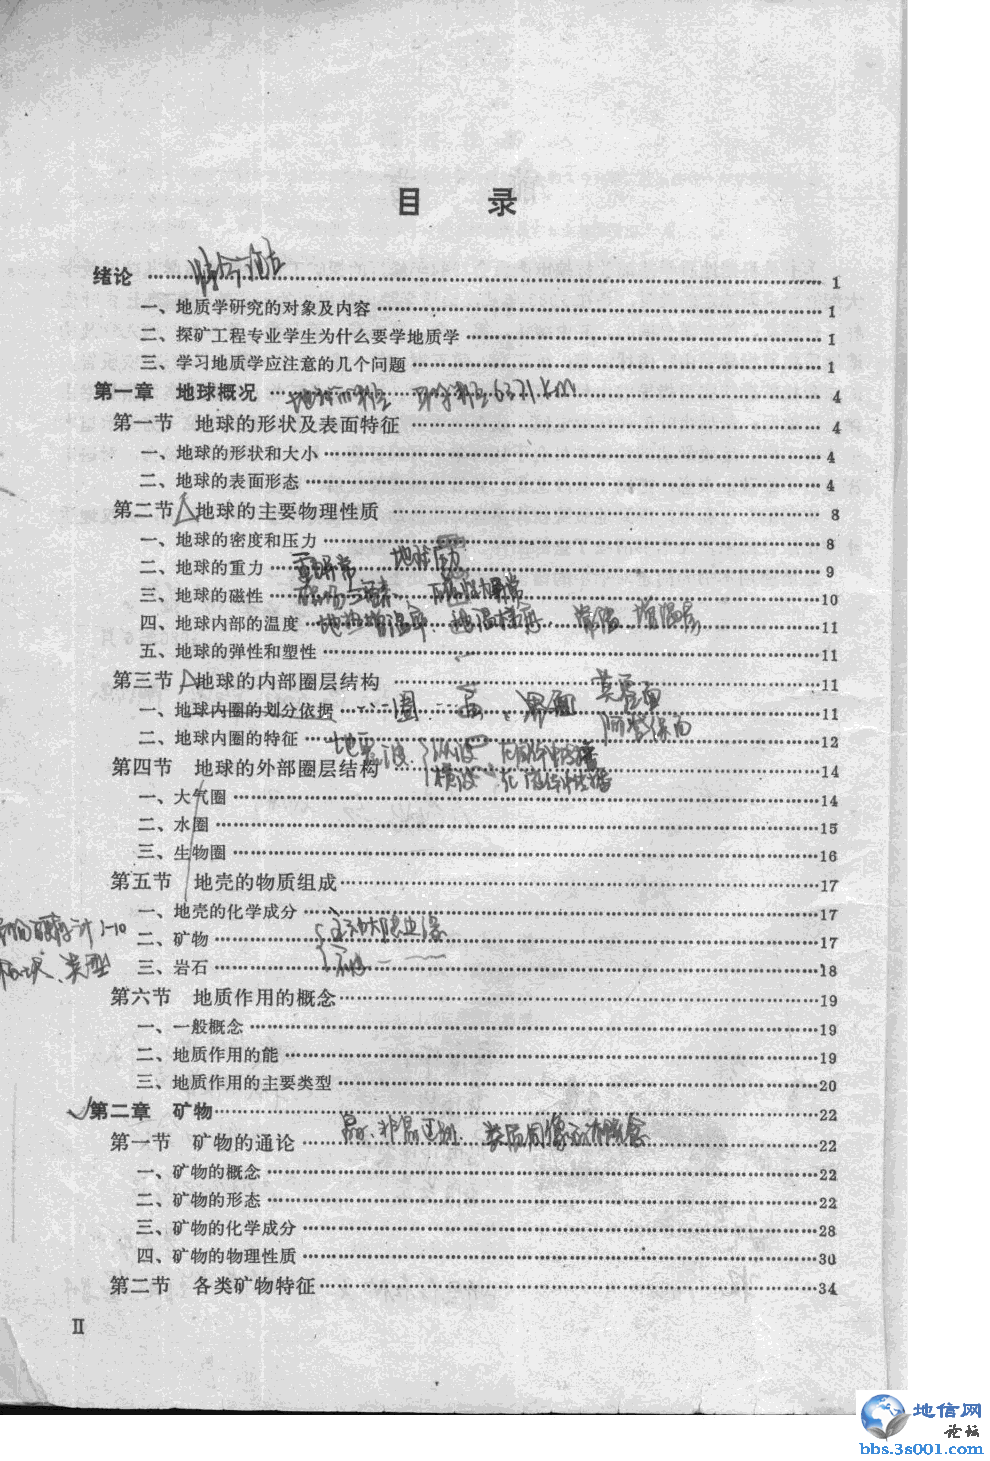 目 录
绪论 …… 1
一、地质学研究的对象及内容 …… 1
二、探矿工程专业学生为什么要学地质学 …… 1
三、学习地质学应注意的几个问题 …… 1
第一章 地球概况 …… 4
第一节 地球的形状及表面特征 …… 4
一、地球的形状和大小 …… 4
二、地球的表面形态 …… 4
第二节 地球的主要物理性质 …… 8
一、地球的密度和压力 …… 8
二、地球的重力 …… 9
重力异常 地球压力
三、地球的磁性 …… 10
四、地球内部的温度 …… 11
地热增温率
五、地球的弹性和塑性 …… 11
第三节 地球的内部圈层结构 …… 11
一、地球内圈的划分依据 …… 11
界面 莫霍面
二、地球内圈的特征 …… 12
地震波 纵波
第四节 地球的外部圈层结构 …… 14
横波
一、大气圈 …… 14
二、水圈 …… 15
三、生物圈 …… 16
第五节 地壳的物质组成 …… 17
一、地壳的化学成分 …… 17
二、矿物 …… 17
三、岩石 …… 18
第六节 地质作用的概念 …… 19
一、一般概念 …… 19
二、地质作用的能 …… 19
三、地质作用的主要类型 …… 20
第二章 矿物 …… 22
第一节 矿物的通论 …… 22
一、矿物的概念 …… 22
二、矿物的形态 …… 22
三、矿物的化学成分 …… 28
四、矿物的物理性质 …… 30
第二节 各类矿物特征 …… 34
II
地信网
论坛
bbs.3s001.com